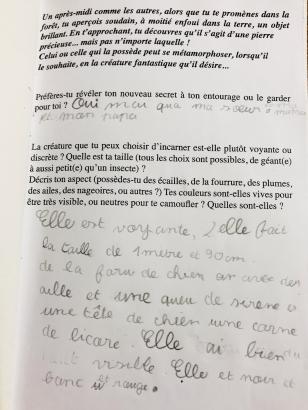 Un après-midi comme les autres, alors que tu te promènes dans la
forêt, tu aperçois soudain, à moitié enfoui dans la terre, un objet
brillant. En t'approchant, tu découvres qu'il s'agit d'une pierre
précieuse... mais pas n'importe laquelle !
Celui ou celle qui la possède peut se métamorphoser, lorsqu'il
le souhaite, en la créature fantastique qu'il désire...
Préfères-tu révéler ton nouveau secret à ton entourage ou le garder
pour toi ? Oui meu qua ma sœur
et mon papa
La créature que tu peux choisir d'incarner est-elle plutôt voyante ou
discrète ? Quelle est ta taille (tous les choix sont possibles, de géant(e)
à aussi petit(e) qu'un insecte) ?
Décris ton aspect (possèdes-tu des écailles, de la fourrure, des plumes,
des ailes, des nageoires, ou autres ?) Tes couleurs sont-elles vives pour
être très visible, ou neutres pour te camoufler ? Quelles sont-elles ?
Elle est voyante, elle fait
la taille de 1 mètre et 90cm.
de la de chien avec des
aille et une queu de sirene
une tête de chien une carne
de licare. Elle ai bien
visible. Elle et noir et
banc et range.